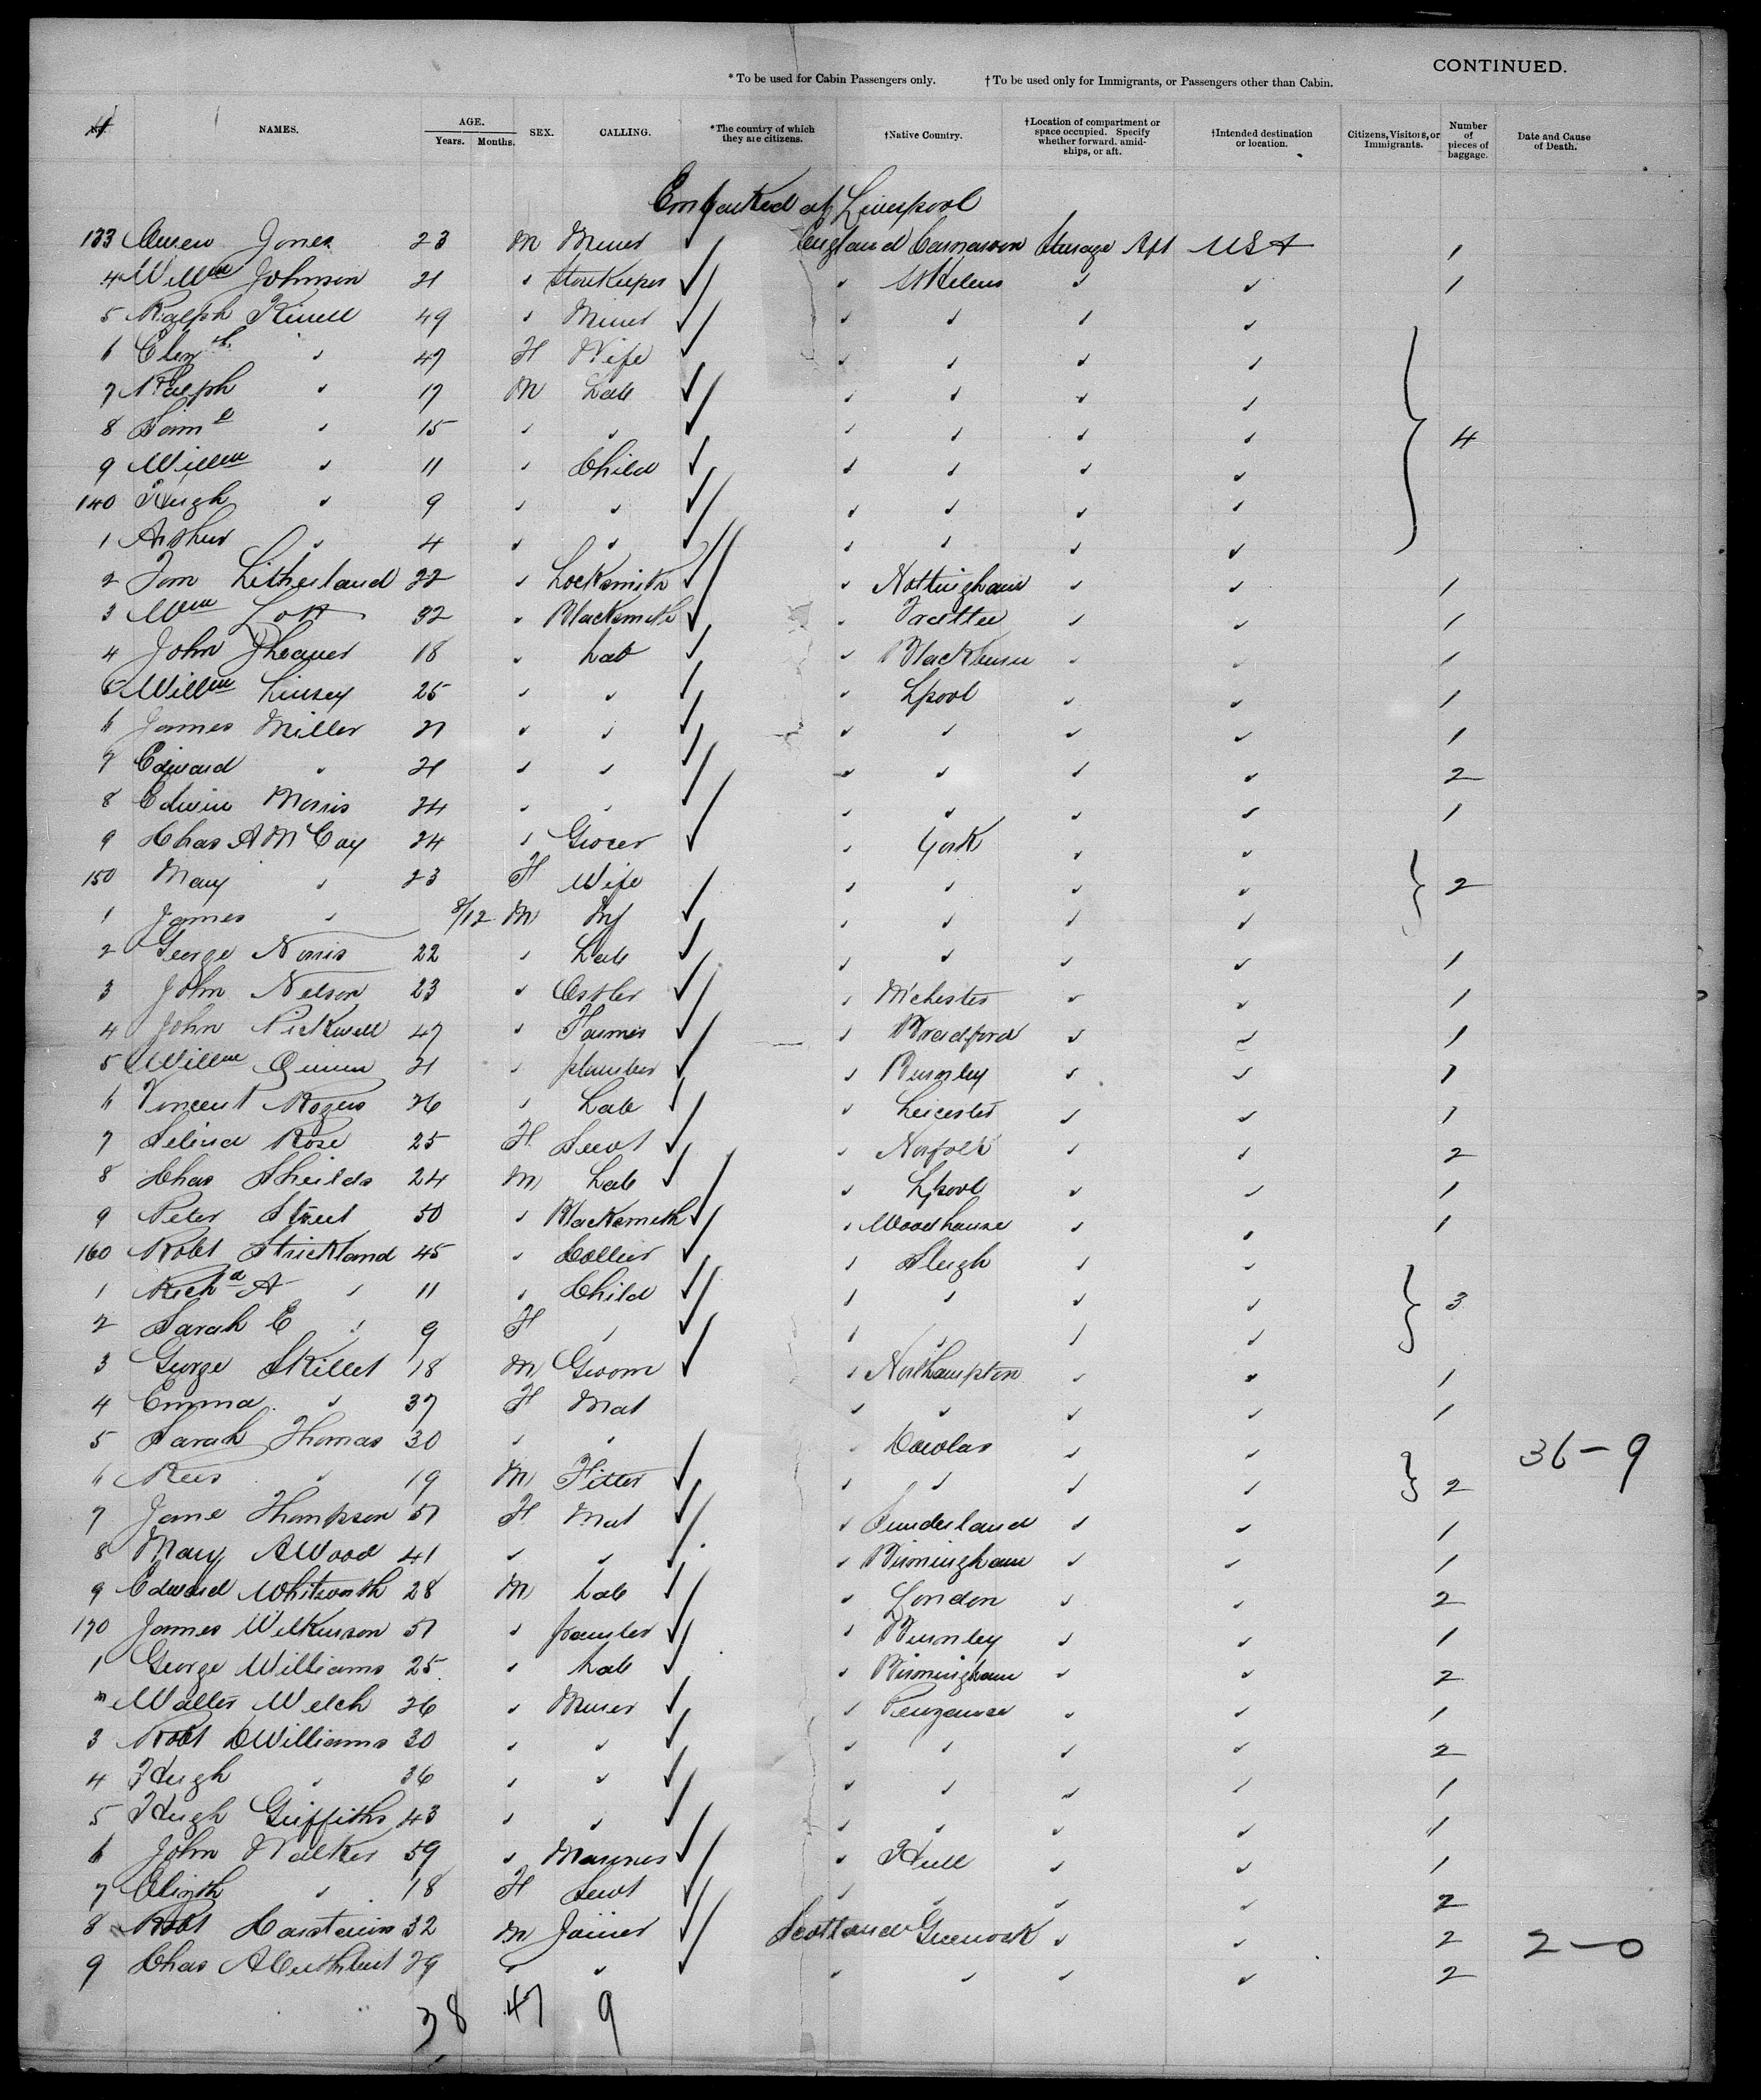 CONTINUED.
* To be used for Cabin Passengers only. † To be used only for Immigrants, or Passengers other than Cabin.
NAMES. AGE. Years. Months. SEX. CALLING. *The country of which they are citizens. †Native Country. †Location of compartment or space occupied. Specify whether forward, amidships, or aft. †Intended destination or location. Citizens, Visitors, or Immigrants. Number of pieces of baggage. Date and Cause of Death.
Embarked at Liverpool
133 Owen Jones 23 M Miner ✓ England Carnarvon Steerage Aft USA 1
4 Willm Johnson 21 " Storekeeper ✓ " St Helens " " 1
5 Ralph 49 " Miner ✓ " " " "
6 Elizth " 47 F Wife ✓ " " " "
7 Ralph " 17 M Lab ✓ " " " "
8 Saml " 15 " " ✓ " " " " 4
9 Willm " 11 " Child ✓ " " " "
140 Hugh " 9 " " ✓ " " " "
1 Arthur " 4 " " ✓ " " " "
2 Tom Litherland 22 " Locksmith ✓ " Nottingham " " 1
3 Wm Lott 32 " Blacksmith ✓ " " " 1
4 John 18 " Lab ✓ " Blackburn " " 1
5 Willm Linsey 25 " " ✓ " Lpool " " 1
6 James Miller 21 " " ✓ " " " " 1
7 Edward " 21 " " ✓ " " " " 2
8 Edwin Morris 24 " " ✓ " " " " 1
9 Chas A McCay 24 " Grocer ✓ " York " "
150 Mary " 23 F Wife ✓ " " " " 2
1 James " 8/12 M Inf ✓ " " " "
2 George Norris 22 " Lab ✓ " " " " 1
3 John Nelson 23 " Ostler ✓ " M'chester " " 1
4 John Pickwell 47 " Farmer ✓ " Bradford " " 1
5 Willm Quinn 21 " plumber ✓ " Burnley " " 1
6 Vincent Rogers 26 " Lab ✓ " Leicester " " 1
7 Selina Rose 25 F Servt ✓ " Norfolk " " 2
8 Chas Sheilds 24 M Lab ✓ " Lpool " " 1
9 Peter Street 50 " Blacksmith ✓ " Woodhouse " " 1
160 Robt Strickland 45 " Collier ✓ " " "
1 Richd A " 11 " Child ✓ " " " " 3
2 Sarah E " 9 F " ✓ " " " "
3 George Skillet 18 M Groom ✓ " Northampton " " 1
4 Emma " 37 F Mat " " " " 1
5 Sarah Thomas 30 " " " Dowlas " " 36-9
6 Rees " 19 M Fitter ✓ " " " " 2
7 Jane Thompson 51 F Mat ✓ " Sunderland " " 1
8 Mary A Wood 41 " " ✓ " Birmingham " " 1
9 Edward Whitworth 28 M Lab ✓ " London " " 2
170 James Wilkinson 51 " ✓ " Burnley " " 1
1 George Williams 25 " Lab ✓ " Birmingham " " 2
Walter Welch 26 " Miner ✓ " Penzance " " 1
3 Robt Williams 30 " " ✓ " " " " 2
4 Hugh " 36 " " ✓ " " " " 1
5 Hugh Griffiths 43 " " ✓ " " " " 1
6 John Walker 59 " Mariner ✓ " Hull " " 1
7 Elizth " 18 F Servt ✓ " " " " 2
8 Robt 32 M Joiner ✓ Scotland Greenock " " 2 2-0
9 Chas 29 " " ✓ " " " " 2
38 47 9